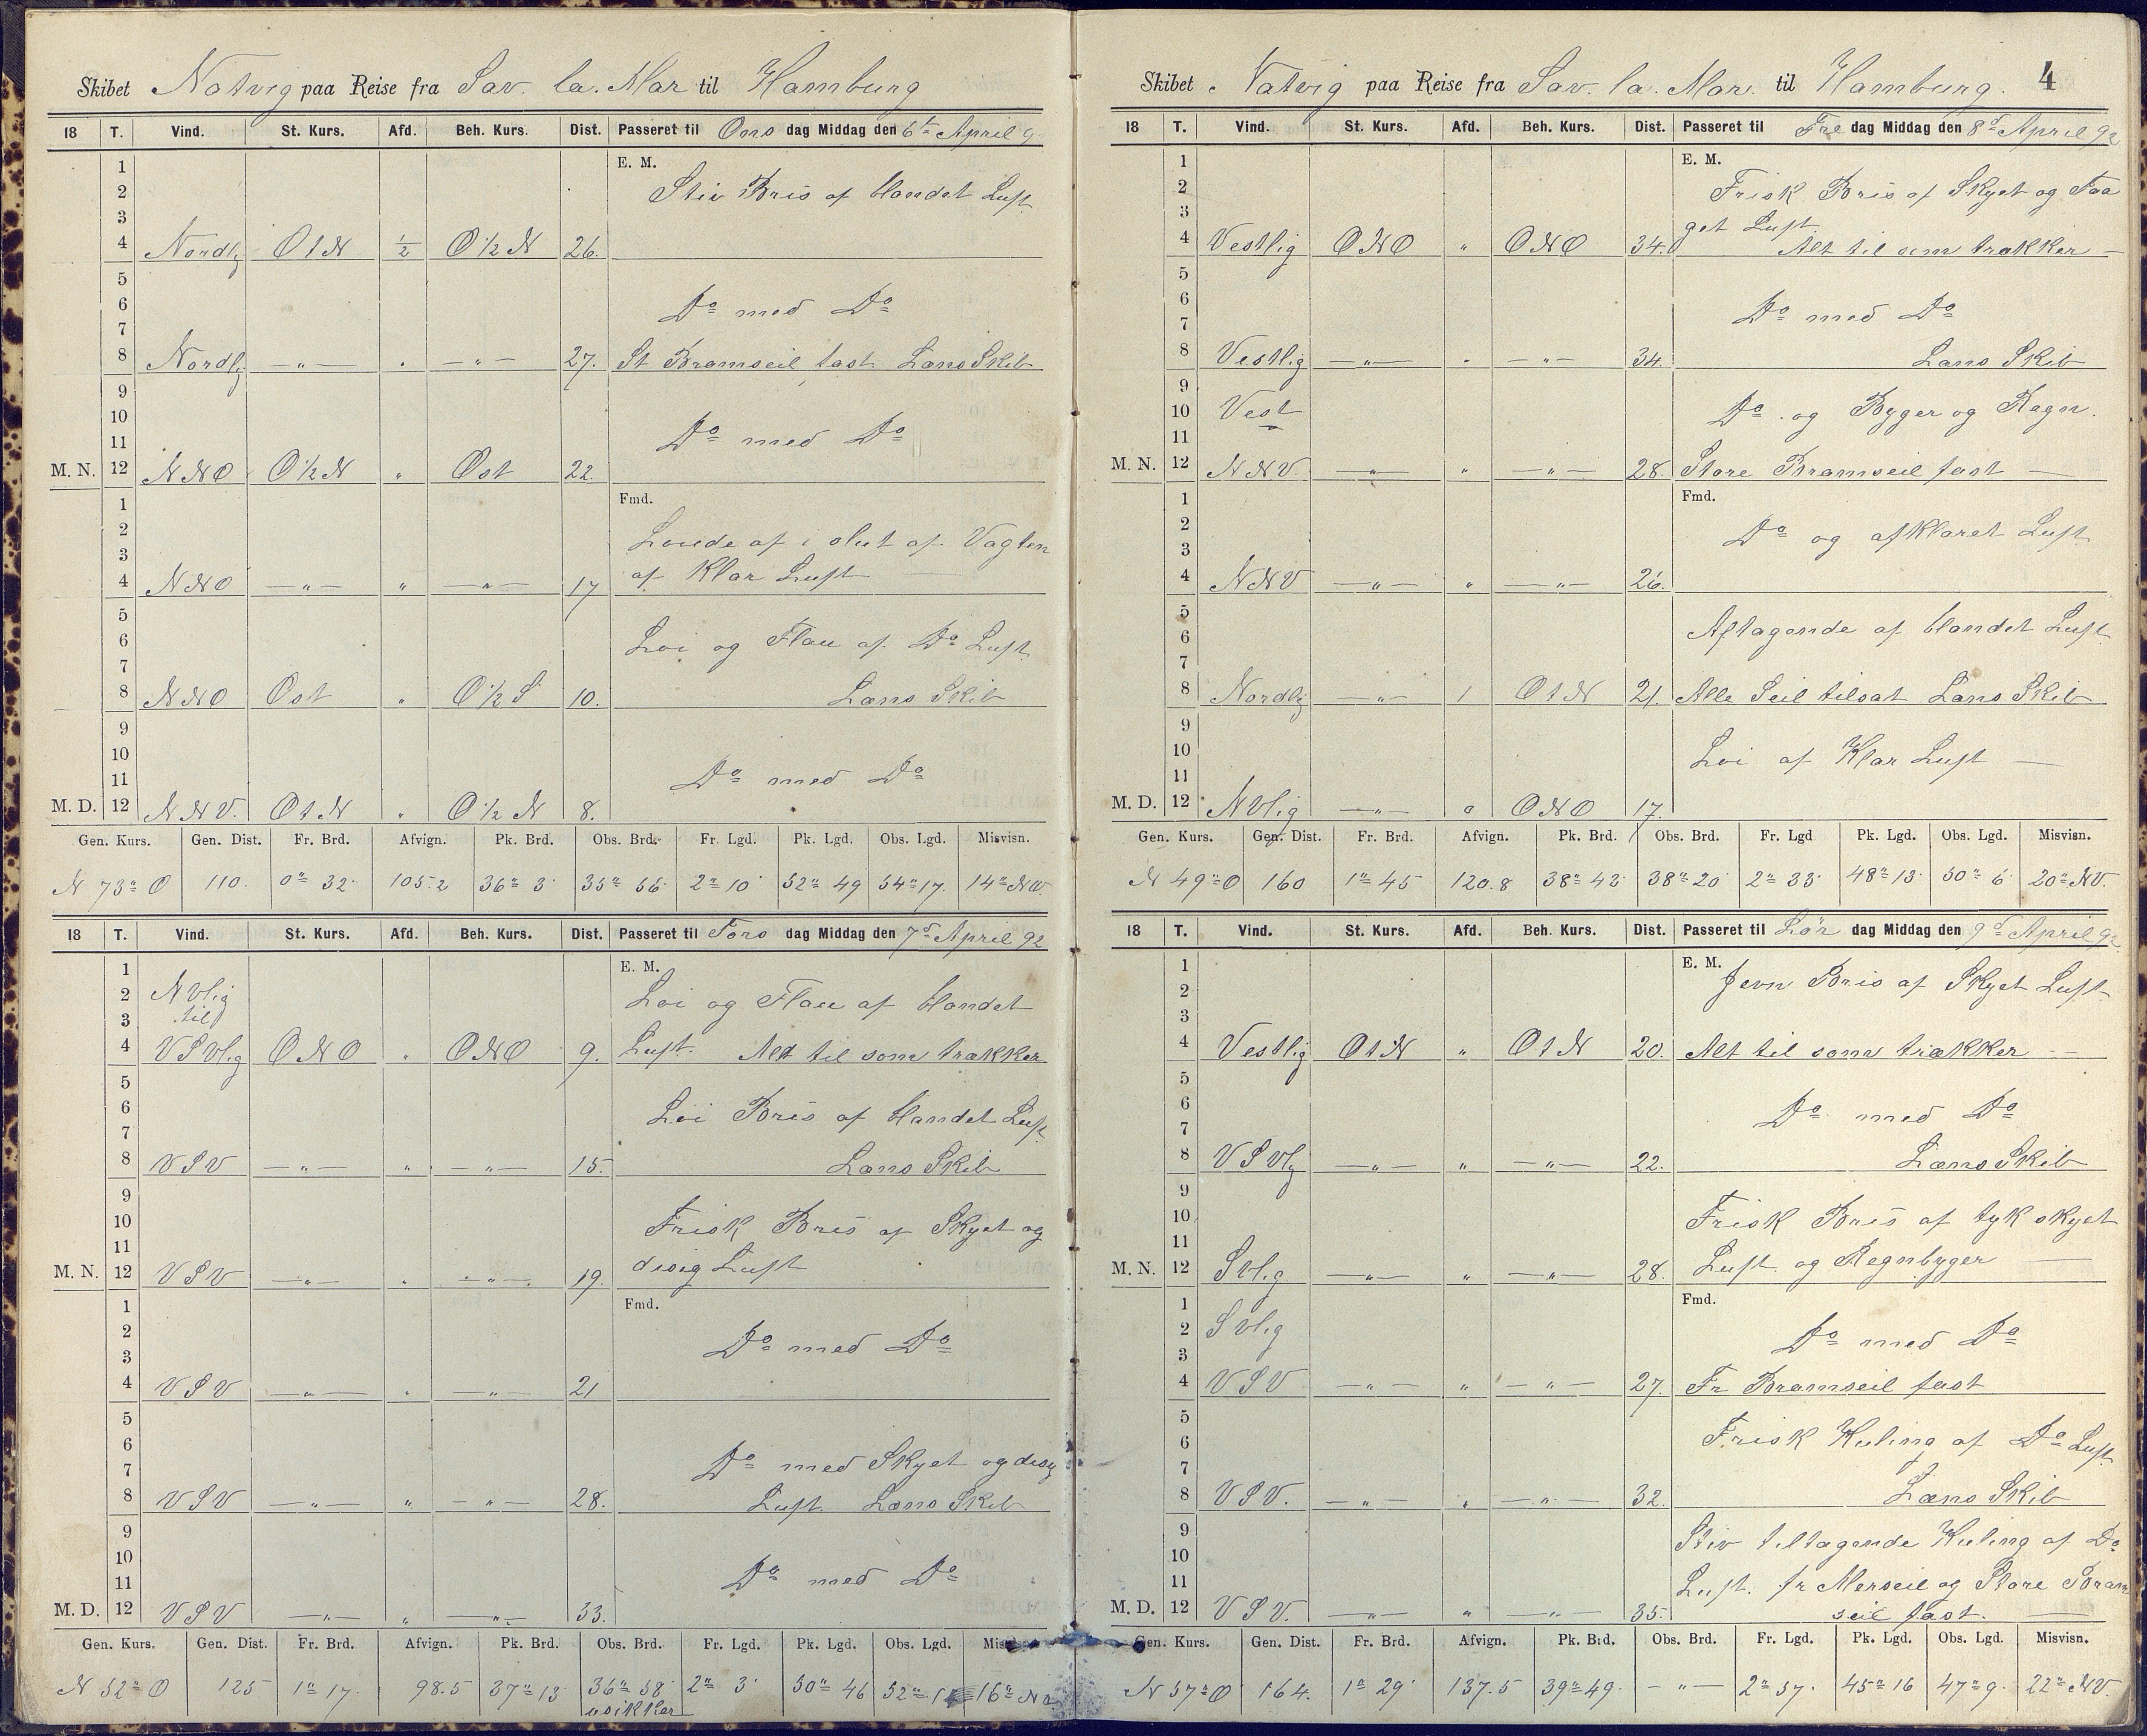 Skibet Natvig paa Reise fra Sav. la. Mar til Hamburg
18 T. Vind. St. Kurs. Afd. Beh. Kurs. Dist. Passeret til Ons dag Middag den 6te April 9
1 E. M.
2 Stiv Bris af blandet Luft
3
4 Nordlig OtN ½ O½N 26.
5
6 Do med Do
7
8 Nordlig —„— „ —„— 27. St Bramseil fast. Læns Skib
9
10
11 Do med Do
M. N. 12 NNO O½N „ Ost 22.
1 Fmd.
2 Løiede af i slut af Vagten
3
4 NNO —„— „ —„— 17 af Klar Luft
5
6 Løi og Flau af Do Luft
7
8 NNO Ost „ O½S 10. Læns Skib
9
10
11 Do med Do
M. D. 12 NNV. OtN „ O½N 8.
Gen. Kurs. Gen. Dist. Fr. Brd. Afvign. Pk. Brd. Obs. Brd. Fr. Lgd. Pk. Lgd. Obs. Lgd. Misvisn.
N 73° O 110. 0° 32' 105.2 36° 3' 35° 56' 2° 10' 52° 49 54° 17. 14° NV.
18 T. Vind. St. Kurs. Afd. Beh. Kurs. Dist. Passeret til Tors dag Middag den 7de April 92
1 E. M.
2 NVlig Løi og Flau af blandet
3 til
4 VSVlig ONO „ ONO 9. Luft. Alt til som trækker
5
6 Løi Bris af blandet Luft
7
8 VSV —„— „ —„— 15. Læns Skib
9
10 Frisk Bris af Skyet og
11
M. N. 12 VSV —„— „ —„— 19. disig Luft
1 Fmd.
2 Do med Do
3
4 VSV —„— „ —„— 21
5
6
7 Do med Skyet og disig
8 VSV —„— „ —„— 28. Luft. Læns Skib
9
10
11 Do med Do
M. D. 12 VSV —„— „ —„— 33.
Gen. Kurs. Gen. Dist. Fr. Brd. Afvign. Pk. Brd. Obs. Brd. Fr. Lgd. Pk. Lgd. Obs. Lgd.
N 52° O 125 1° 17' 98.5 37° 13' 36° 58' 2° 3' 50° 46 52° 16°
usikker
Skibet Natvig paa Reise fra Sav. la. Mar. til Hamburg. 4
18 T. Vind. St. Kurs. Afd. Beh. Kurs. Dist. Passeret til Fre dag Middag den 8de April 92
1 E. M.
2 Frisk Bris af Skyet og Taa
3 get Luft
4 Vestlig ONO „ ONO 34. Alt til som trækker —
5
6 Do med Do
7
8 Vestlig —„— „ —„— 34. Læns Skib
9
10 Vest Do og Byger og Regn.
11
M. N. 12 NNV. —„— „ —„— 28. Store Bramseil fast —
1 Fmd.
2 Do og afklaret Luft
3
4 NNV —„— „ —„— 26.
5
6 Aftagende af blandet Luft
7
8 Nordlig —„— 1 OtN 21. Alle Seil tilsat Læns Skib
9
10 Løi af Klar Luft —
11
M. D. 12 NVlig —„— 0 ONO 17.
Gen. Kurs. Gen. Dist. Fr. Brd. Afvign. Pk. Brd. Obs. Brd. Fr. Lgd Pk. Lgd. Obs. Lgd. Misvisn.
N 49° O 160 1° 45 120.8 38° 43' 38° 20' 2° 33' 48° 13' 50° 6' 20° NV.
18 T. Vind. St. Kurs. Afd. Beh. Kurs. Dist. Passeret til Lør dag Middag den 9de April 92
1 E. M. Jevn Bris af Skyet Luft
2
3
4 Vestlig OtN „ OtN 20. Alt til som trækker —
5
6 Do med Do
7
8 VSVlig —„— „ —„— 22. Læns Skib
9
10 Frisk Bris af tyk skyet
11
M. N. 12 SVlig —„— „ —„— 28. Luft og Regnbyger —
1 Fmd.
2 SVlig Do med Do
3
4 VSV —„— „ —„— 27. Fr Bramseil fast
5
6 Frisk Kuling af Do Luft
7
8 VSV. —„— „ —„— 32. Læns Skib
9 Stiv tiltagende Kuling af Do
10
11 Luft. fr Merseil og Store Bram
M. D. 12 VSV. —„— „ —„— 35. seil fast. —
Gen. Kurs. Gen. Dist. Fr. Brd. Afvign. Pk. Brd. Obs. Brd. Fr. Lgd. Pk. Lgd. Obs. Lgd. Misvisn.
N 57° O 164. 1° 29' 137.5 39° 49' —„— 2° 57' 45° 16 47° 9. 22° NV.